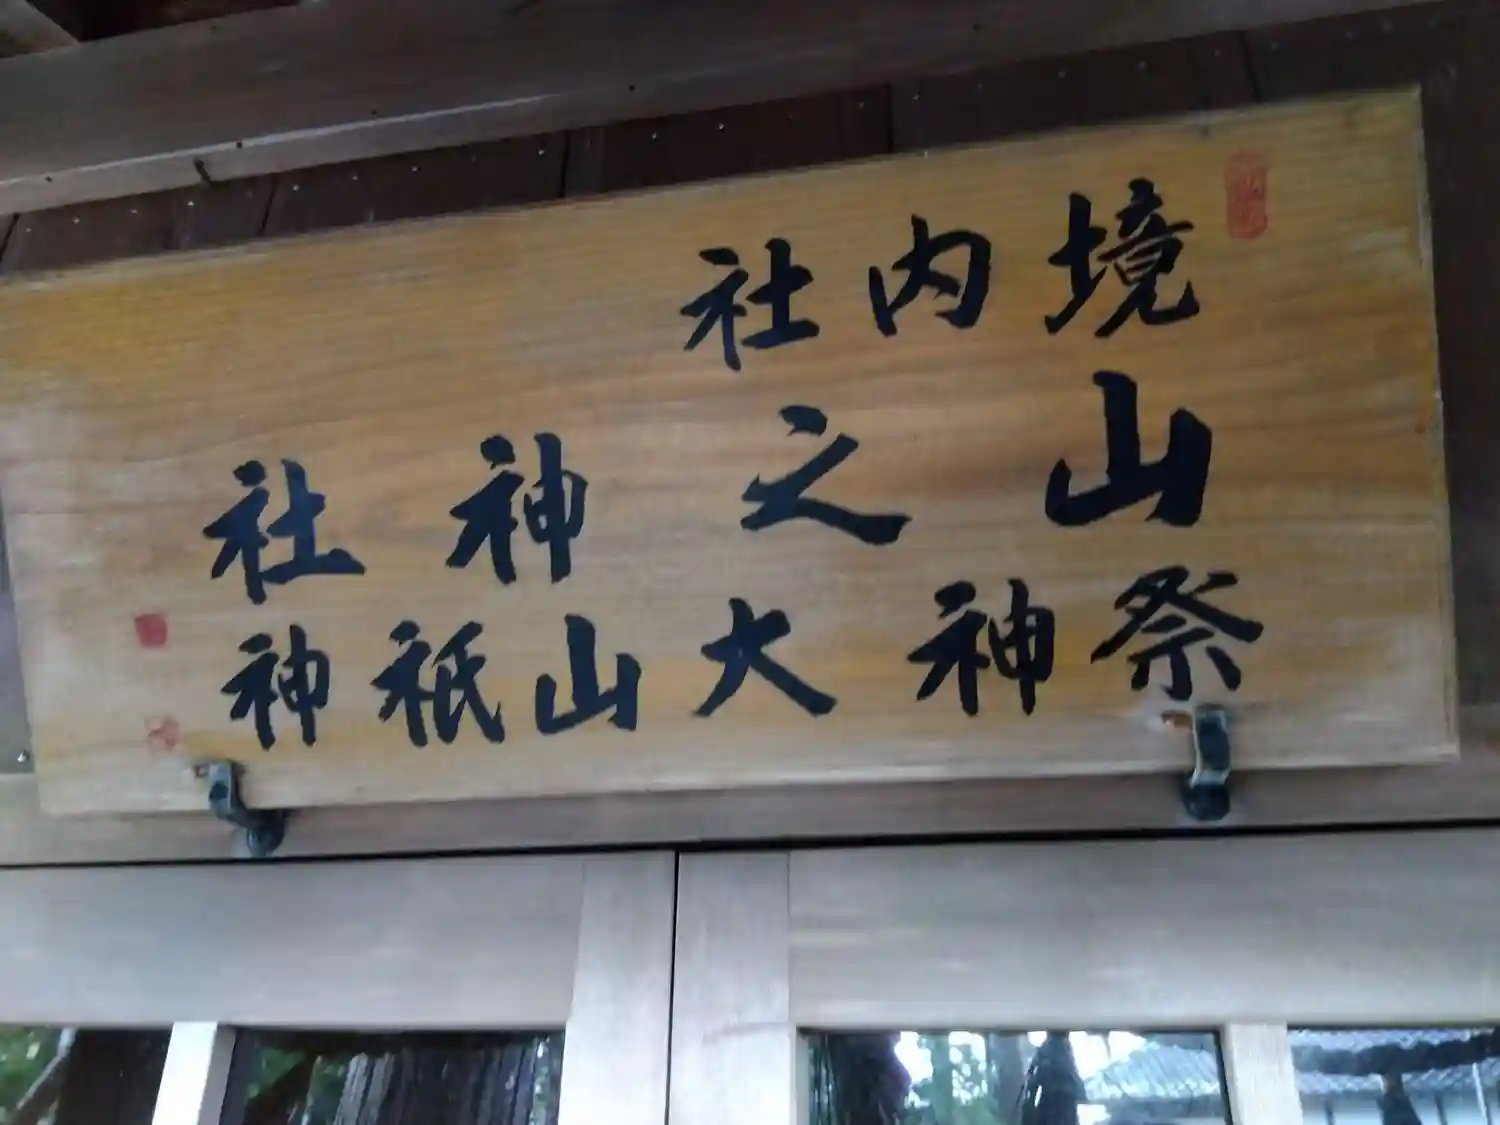 境内社
山之神社
祭神大山祇神